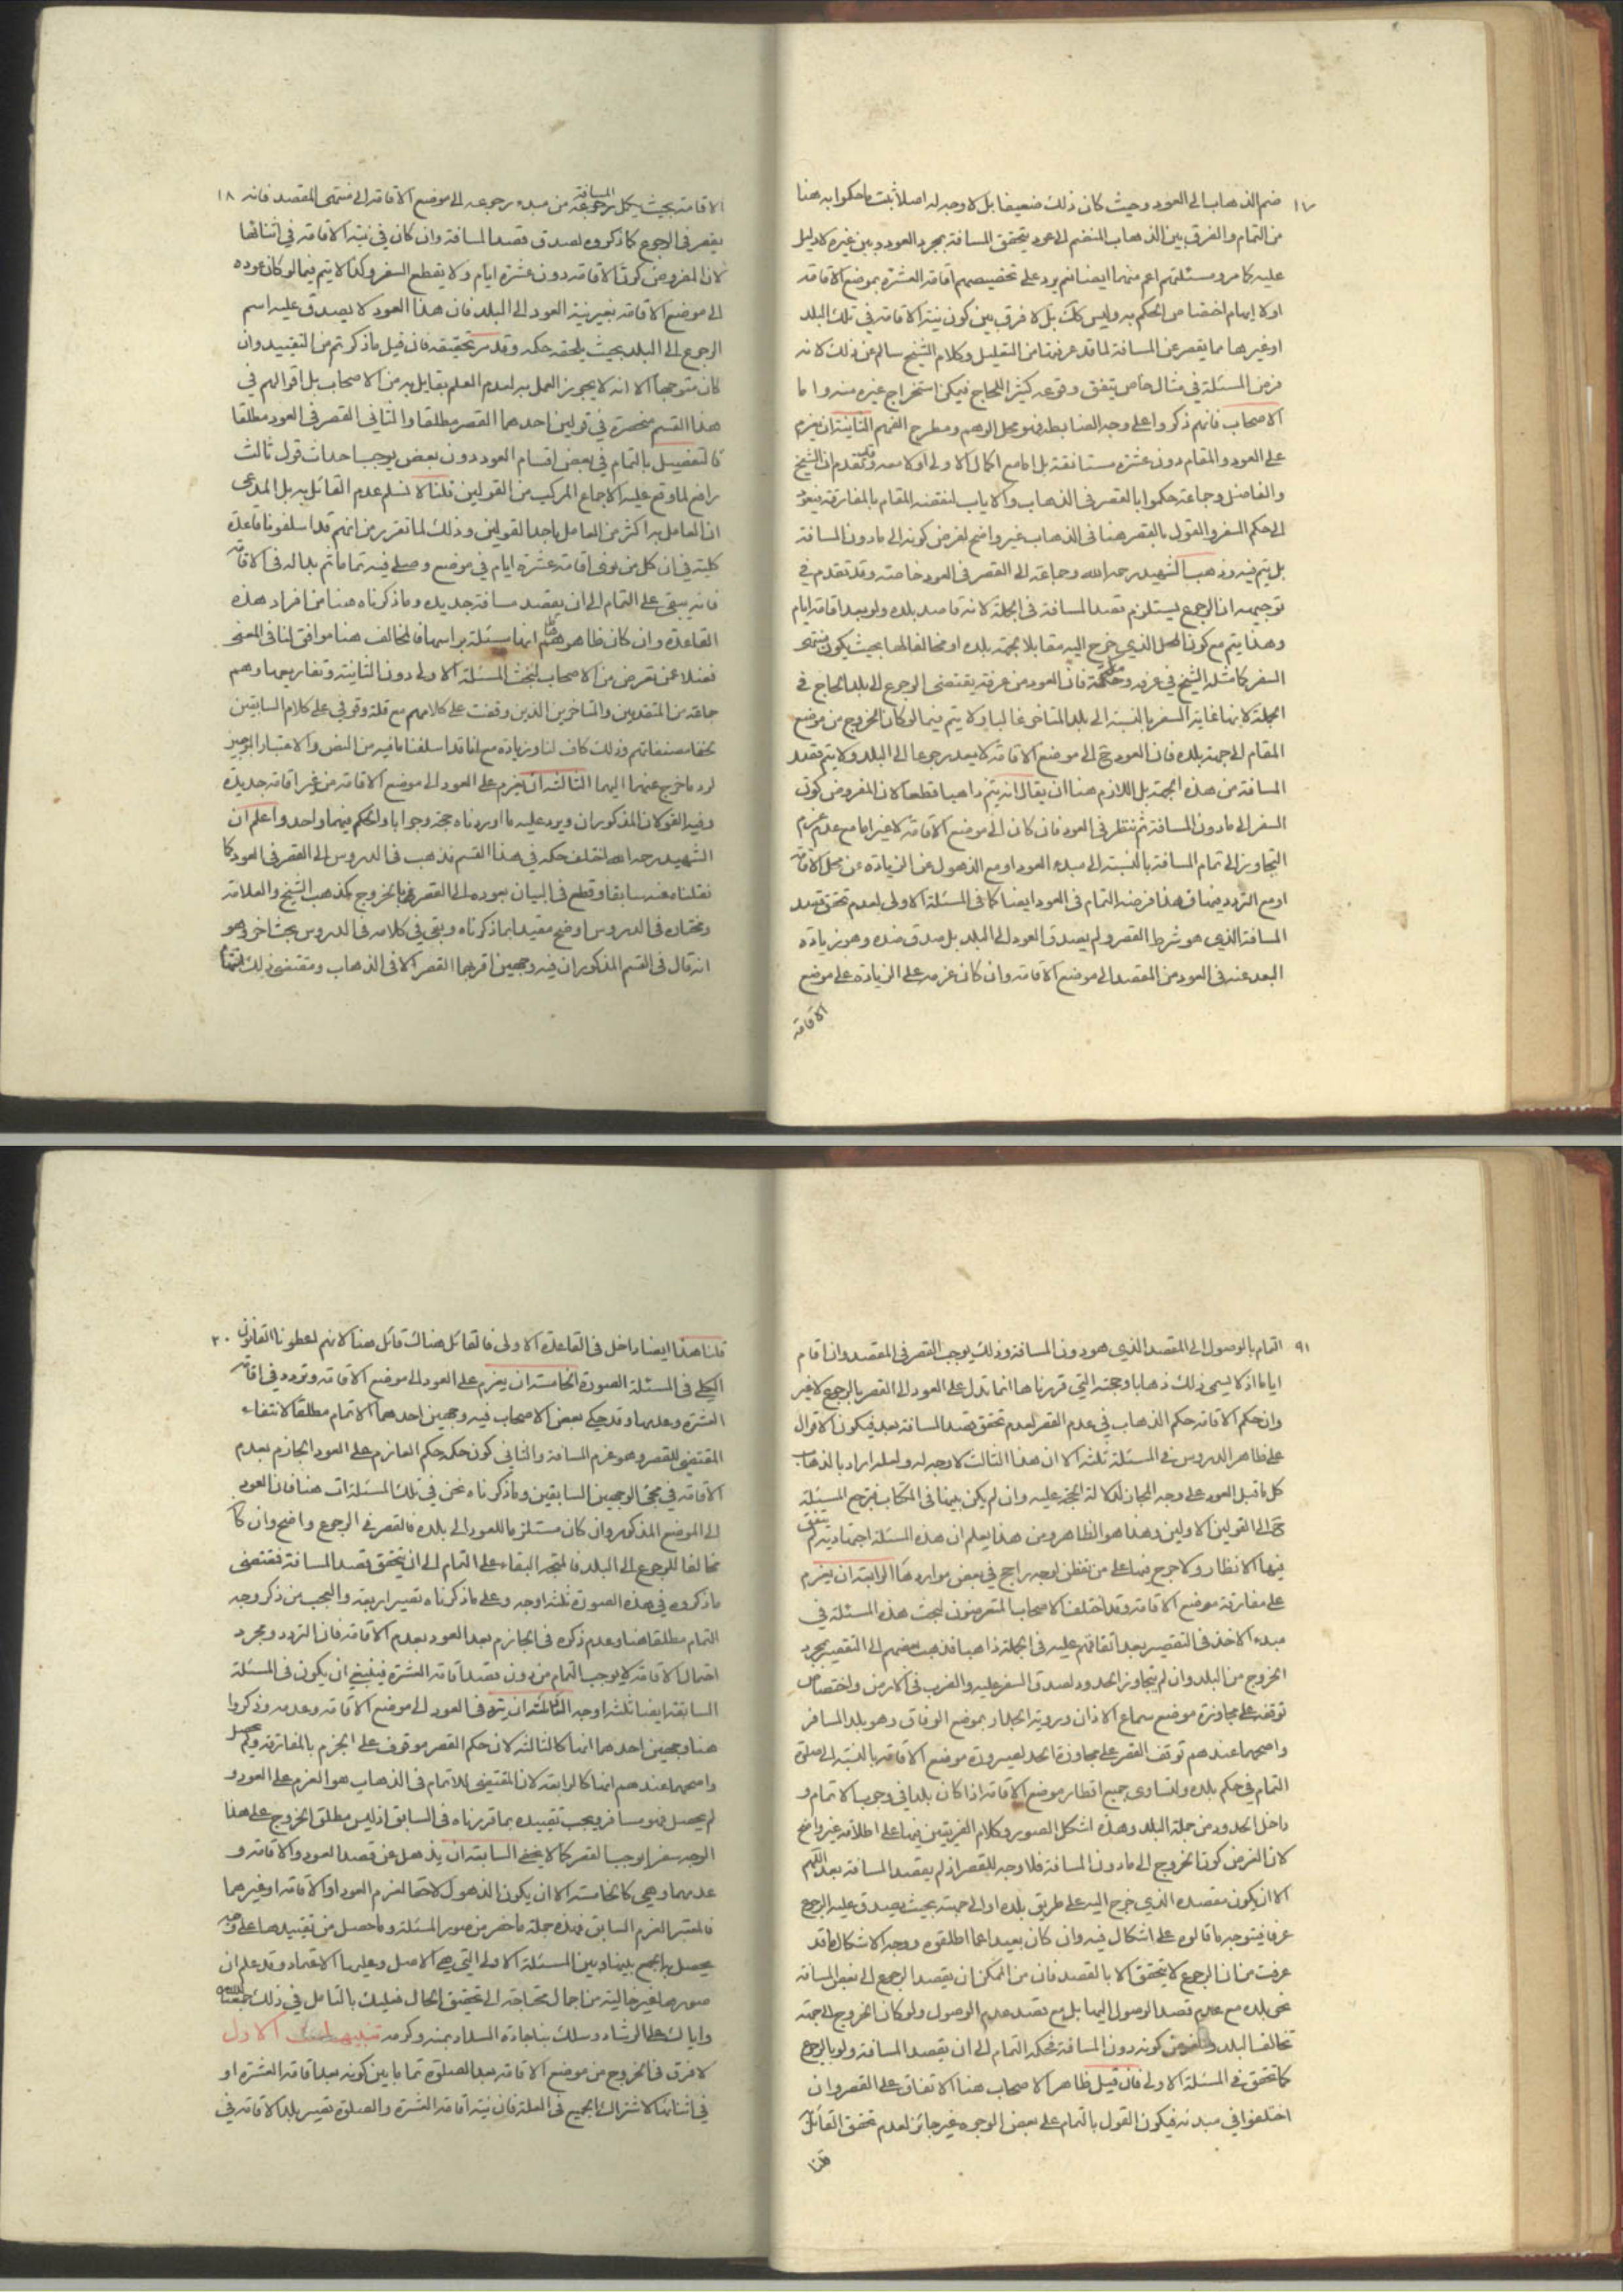 ١٧
ضم الذهاب الى العود وحيث كان ذلك ضعيفا بل لا وجه له اصلا ثبت ما حكموا به هنا
من التمام والفرق بين الذهاب المنضم الى عود يتحقق المسافة بمجرد العود وبين غيره لا دليل
عليه كما مر ومسئلتهم اعم منهما ايضا نعم يرد على تخصيصهم اقامة العشرة بموضع الاقامة
اولا ايهام اختصاص الحكم به وليس كك بل لا فرق بين كون نية الاقامة في تلك البلد
او غيرها مما يقصر عن المسافة لما قد عرفت من التعليل وكلام الشيخ سالم عن ذلك لانه
فرض المسئلة في مثال خاص يتفق وقوعه كثيرا للحاج فيمكن استخراج غيره منه واما
الاصحاب فانهم ذكروا على وجه الضابط فهو محل الوهم ومطرح الفهم الثانية ان يعزم
على العود والمقام دون عشرة مستانفة بل اما مع اكمال الاولى اولا معه وقد تقدم ان الشيخ
والفاضل وجماعة حكموا بالقصر في الذهاب والاياب لنقضه المقام بالمفارقة فيعود
الى حكم السفر والقول بالقصر هنا في الذهاب غير واضح لفرض كونه الى مادون المسافة
بل يتم فيه وذهب الشهيد رحمه الله وجماعة الى القصر في العود خاصة وقد تقدم في
توجيهه ان الرجوع يستلزم قصد المسافة في الجملة لانه قاصد بلده ولو بعد اقامة ايام
وهذا يتم مع كون المحل الذي خرج اليه مقابلا لجهة بلده او مخالفا لها بحيث يكون منتهى
السفر كما مثله الشيخ في عرفة ومكة فان العود من عرفة يقتضي الرجوع الى بلد الحاج في
الجملة لانها غاية السفر بالنسبة الى بلد المتاخر غالبا ولا يتم فيما لو كان الخروج من موضع
المقام الى جهة بلده فان العود ح الى موضع الاقامة لا يعد رجوعا الى البلد ولا يتم بقصد
المسافة من هذه الجهة بل اللازم هنا ان يقال انه يتم ذاهبا قطعا لان المفروض كون
السفر الى مادون المسافة ثم ننظر في العود فان كان الى موضع الاقامة لا غير اما مع عدم عزم
التجاوز الى تمام المسافة بالنسبة الى مبدء العود او مع الذهول عن الزيادة عن محل الاقامة
او مع التردد فيها فهذا فرضه التمام في العود ايضا كما في المسئلة الاولى لعدم تحقق قصد
المسافة الذي هو شرط القصر ولم يصدق العود الى البلد بل صدق ضده وهو زيادة
البعد عنه في العود من المقصد الى موضع الاقامة وان كان عزمه على الزيادة على موضع
الاقامة
١٨
الاقامة بحيث يكمل المسافة من مبدء رجوعه الى موضع الاقامة الى منتهى المقصد فانه
يقصر في الرجوع كما ذكروه لصدق قصد المسافة وان كان في نية الاقامة في اثنائها
لان المفروض كون الاقامة دون عشرة ايام ولا يقطع السفر وكذا لا يتم فيما لو كان عوده
الى موضع الاقامة بغير نية العود الى البلد فان هذا العود لا يصدق عليه اسم
الرجوع الى البلد بحيث يلحقه حكمه وقد مر تحقيقه فان قيل ما ذكرتم من التقييد وان
كان متوجها الا انه لا يجوز العمل به لعدم العلم بقايل به من الاصحاب بل اقوالهم في
هذا القسم منحصرة في قولين احدهما القصر مطلقا والثاني القصر في العود مطلقا
فالتفصيل بالتمام في بعض اقسام العود دون بعض يوجب احداث قول ثالث
رافع لما وقع عليه الاجماع المركب من القولين قلنا لا نسلم عدم القائل به بل المدعى
ان العامل به اكثر من العامل باحد القولين وذلك لما تقرر من انهم قد اسلفونا قاعدة
كلية في ان كل من نوى اقامة عشرة ايام في موضع وصلى فيه تماما ثم بدا له في الاقامة
فانه يبقى على التمام الى ان يقصد مسافة جديدة وما ذكرناه هنا من افراد هذه
القاعدة وان كان ظاهرهم انها مسئلة براسها فالمخالف هنا موافق لنا في المعنى
فضلا عن تعرض من الاصحاب لبحث المسئلة الاولى دون الثانية وتفاريعها وهم
جماعة من المتقدمين والمتاخرين الذين وقفت على كلامهم مع قلة وقوفي على كلام السابقين
لخفا مصنفاتهم وذلك كاف لنا وزيادة مع انا قد اسلفنا ما فيه من النص والاعتبار الوجيز
لرد ما خرج عنهما اليهما الثالثة ان يعزم على العود الى موضع الاقامة من غير اقامة جديدة
وفيه القولان المذكوران ويرد عليه ما اوردناه حجة وجوابا والحكم فيهما واحد واعلم ان
الشهيد رحمه الله اختلف حكمه في هذا القسم فذهب في الدروس الى القصر في العود كما
نقلناه عنه سابقا وقطع في البيان بعوده الى القصر بالخروج كمذهب الشيخ والعلامة
ومختاره في الدروس اوضح مقيدا بما ذكرناه وبقي في كلامه في الدروس بحث اخر وهو
انه قال في القسم المذكور ان فيه وجهين اقربهما القصر الا في الذهاب ومقتضى ذلك
٩١
التمام بالوصول الى المقصد الذي هو دون المسافة وذلك يوجب القصر في المقصد وان اقام
اياما اذ لا يسمى ذلك ذهابا وحجته التي قررناها انما تدل على العود الى القصر بالرجوع لا غير
وان حكم الاقامة حكم الذهاب في عدم القصر لعدم تحقق قصد المسافة بعد فيكون الاقوال
على ظاهر الدروس في المسئلة ثلثة الا ان هذا الثالث لا وجه له ولعله اراد بالذهاب
كل ما قبل العود على وجه المجاز لدلالة الحجة عليه وان لم يكن بينا في الكتاب فيرجع المسئلة
ح الى القولين الاولين وهذا هو الظاهر ومن هذا يعلم ان هذه المسئلة اجتهادية يتفق
فيها الانظار ولا حرج فيها على من تفطن لوجه راجح في بعض مواردها الرابعة ان يعزم
على مفارقة موضع الاقامة وقد اختلف الاصحاب المتعرضون لبحث هذه المسئلة في
مبدء الاخذ في التقصير بعد اتفاقهم عليه في الجملة ذاهبا فذهب بعضهم الى التقصير بمجرد
الخروج من البلد وان لم يتجاوز الحدود لصدق السفر عليه والضرب في الارض واختصاص
توقفه على مجاوزة موضع سماع الاذان ورؤية الجدار بموضع الوفاق وهو بلد المسافر
واصحهما عندهم توقف القصر على مجاوزة الحد لصيرورة موضع الاقامة بالنسبة الى صلوة
التمام في حكم بلده ولتساوي جميع اقطار موضع الاقامة اذا كان بلدا في وجوب الاتمام و
داخل الحدود من جملة البلد وهذه اشكل الصور وكلام الفريقين فيها على اطلاقه غير واضح
لان الفرض كون الخروج الى مادون المسافة فلا وجه للقصر اذ لم يقصد المسافة بعد اللهم
الا ان يكون مقصده الذي خرج اليه على طريق بلده او الى جهته بحيث يصدق عليه الرجوع
عرفا فيتوجه ما قالوه على اشكال فيه وان كان بعيدا عما اطلقوه ووجه الاشكال ما قد
عرفت من ان الرجوع لا يتحقق الا بالقصد فان من الممكن ان يقصد الرجوع الى بعض المسافة
نحو بلده مع عدم قصد الوصول اليها بل مع قصد عدم الوصول ولو كان الخروج الى جهة
تخالف البلد والفرض كونه دون المسافة فحكمه التمام الى ان يقصد المسافة ولو بالرجوع
كما تحقق في المسئلة الاولى فان قيل ظاهر الاصحاب هنا الاتفاق على القصر وان
اختلفوا في مبدئه فيكون القول بالتمام على بعض الوجوه غير جائز لعدم تحقق القائل
قلنا
٢٠
قلنا هذا ايضا داخل في القاعدة الاولى فالقائل هناك قائل هنا لانهم اعطونا القانون
الكلي في المسئلة الصورة الخامسة ان يعزم على العود الى موضع الاقامة وتردد في اقامة
العشرة وعدمها وقد حكى بعض الاصحاب فيه وجهين احدهما الاتمام مطلقا لانتفاء
المقتضي للقصر وهو عزم المسافة والثاني كون حكمه حكم العازم على العود الجازم بعدم
الاقامة في مجئ الوجهين السابقين وما ذكرناه نحن في تلك المسئلة ات هنا فان العود
الى الموضع المذكور وان كان مستلزما للعود الى بلده فالقصر في الرجوع واضح وان كان
مخالفا للرجوع الى البلد فالمتجه البقاء على التمام الى ان يتحقق قصد المسافة فمقتضى
ما ذكروه في هذه الصورة ثلثة اوجه وعلى ما ذكرناه تصير اربعة والعجب من ذكر وجه
التمام مطلقا هنا وعدم ذكره في الجازم بعد العود بعدم الاقامة فان التردد ومجرد
احتمال الاقامة لا يوجب التمام من دون قصد اقامة العشرة فينبغي ان يكون في المسئلة
السابقة ايضا ثلثة اوجه ان يتردد في العود الى موضع الاقامة وعدمه وذكروا
هنا وجهين احدهما انها كالثالثة لان حكم القصر موقوف على الجزم بالمفارقة ولم يحصل
واصحهما عندهم انها كالرابعة لان المقتضي للاتمام في الذهاب هو العزم على العود و
لم يحصل فهو مسافر ويجب تقييده بما قررناه في السابق اذ ليس مطلق الخروج على هذا
الوجه سفرا يوجب القصر كما لا يخفى السابعة ان يذهل عن قصد العود والاقامة و
عدمها وهي كالخامسة الا ان يكون الذهول لاحقا لعزم العود او الاقامة او غيرهما
فالمعتبر العزم السابق فهذه جملة ما حضر من صور المسئلة وما حصل من تقييدها على وجه
يحصل به الجمع بينها وبين المسئلة الاولى التي هي الاصل وعليها الاعتماد وقد علم ان
صورها غير خالية من اجمال محتاجة الى تحقيق الحال فعليك بالتامل في ذلك جمعنا الله
واياك على الرشاد وسلك بنا جادة السداد بمنه وكرمه تنبيهات الاول
لا فرق في الخروج من موضع الاقامة بعد الصلوة تماما بين كونه بعد اقامة العشرة او
في اثنائها لاشتراك الجميع في العلة فان نية اقامة العشرة والصلوة تصير بلد الاقامة في